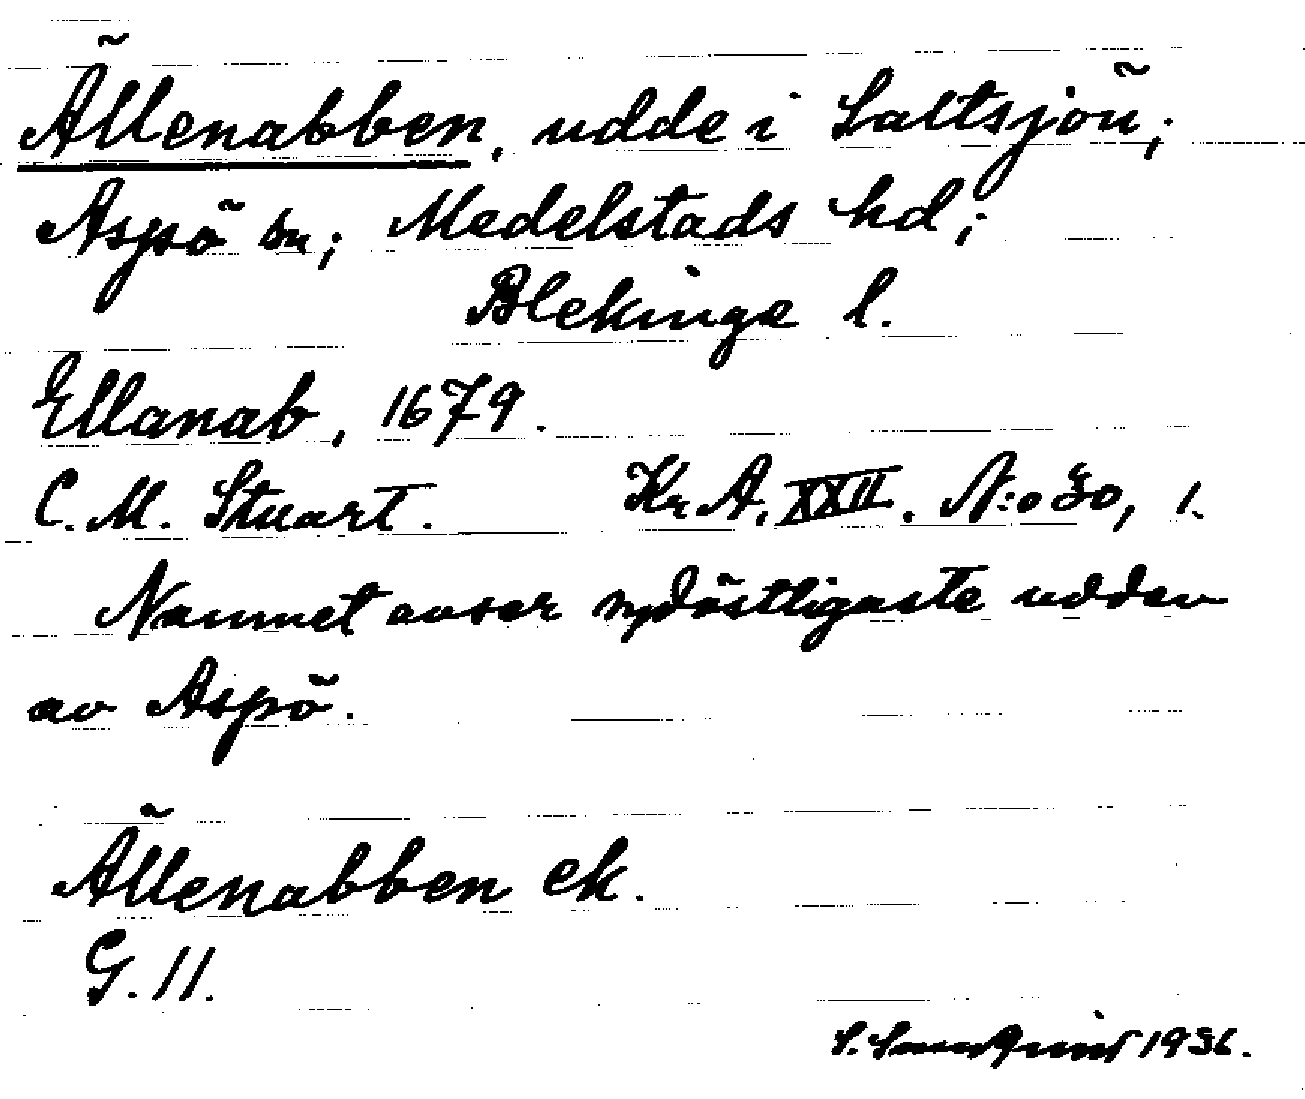 Ällenabben, udde i Saltsjön;
Aspö sn; Medelstads hd;
Blekinge l.
Ellanab, 1679.
C. M. Stuart. Kr. A. XXII. N:o 30, 1.
Namnet avser sydöstligaste udden
av Aspö.
Ällenabben ek.
G. 11.
S. 1936.